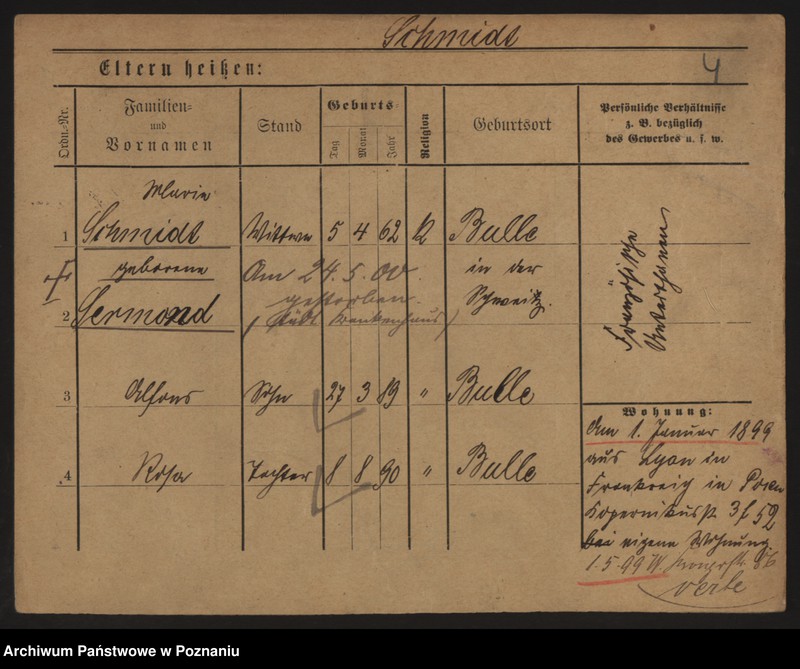 Schmidt
Eltern heißen:
4
Ordn.-Nr.
Familien=
und
Vornamen
Stand
Geburts=
Tag
Monat
Jahr
Religion
Geburtsort
Persönliche Verhältnisse
z. B. bezüglich
des Gewerbes u. s. w.
Marie
1 Schmidt Wittwe 5 4 62 K Bulle
geborene Am 24.5.00. in der
gestorben. Schweitz.
2 Sermond (städt Krankenhaus)
Französische
Unterthanen
3 Alfons Sohn 27 3 89 " Bulle
4 Rosa Tochter 8 8 90 " Bulle
Wohnung:
Am 1. Januar 1899
aus Lyon in
Frankreich in Posen
Kopernikusst. 3
bei eigene Wohnung
1.5.99 W.
Archiwum Państwowe w Poznaniu